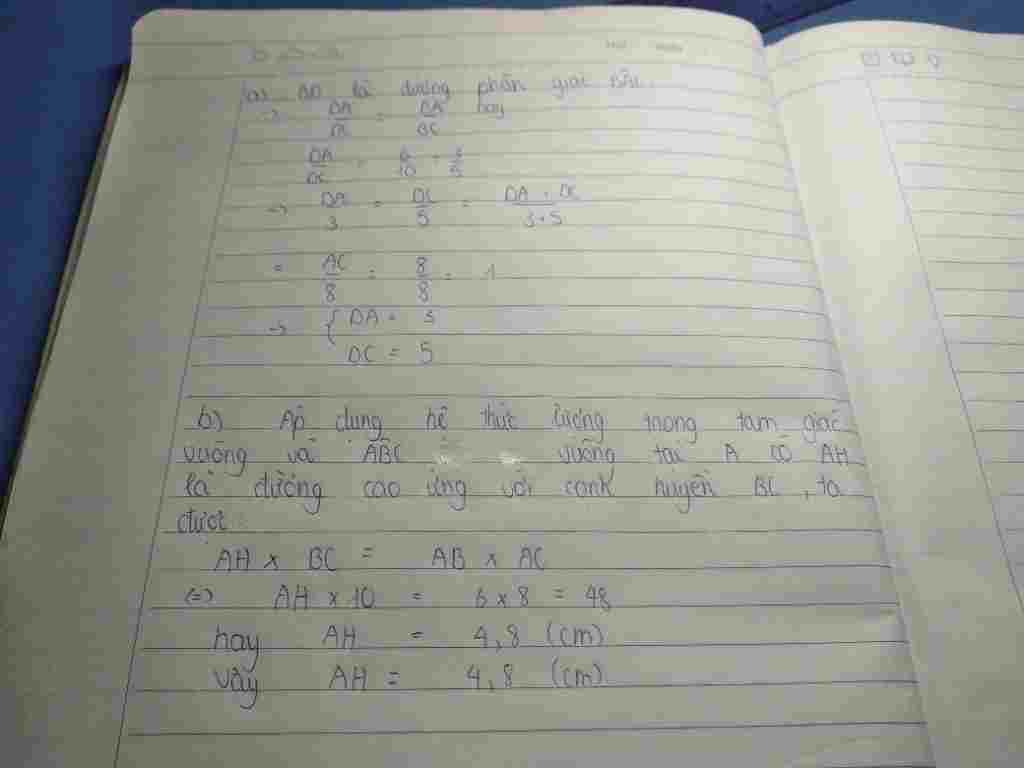 a) BD là đường phân giác
=> DA/DC = BA/BC hay
DA/DC = 6/10 = 3/5
=> DA/3 = DC/5 = DA + DC/3+5
= AC/8 = 8/8 = 1
=> { DA = 3
DC = 5
b) Áp dụng hệ thức lượng trong tam giác
vuông và ABC vuông tại A có AH
là đường cao ứng với cạnh huyền BC, ta
được
AH x BC = AB x AC
(=) AH x 10 = 6 x 8 = 48
hay AH = 4,8 (cm)
vậy AH = 4,8 (cm)